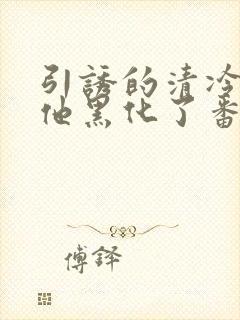 引誘的清冷
他黑化了番
傅鐸